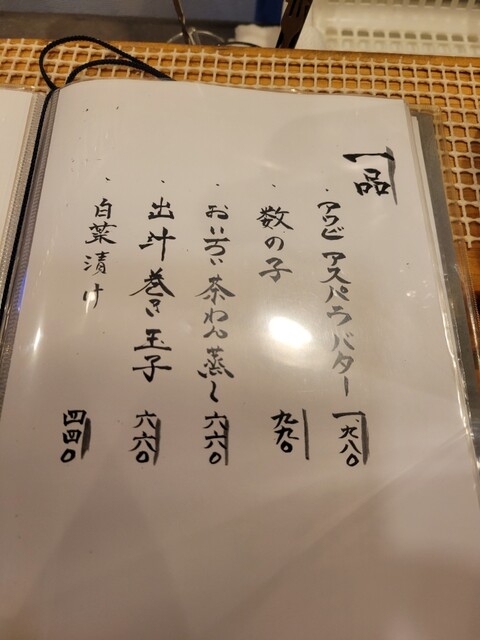 一品
・アワビ アスパラバター 一、九八〇
・数の子 九九〇
・茶わん蒸し 六六〇
・出汁巻き玉子 六六〇
・白菜漬け 四四〇